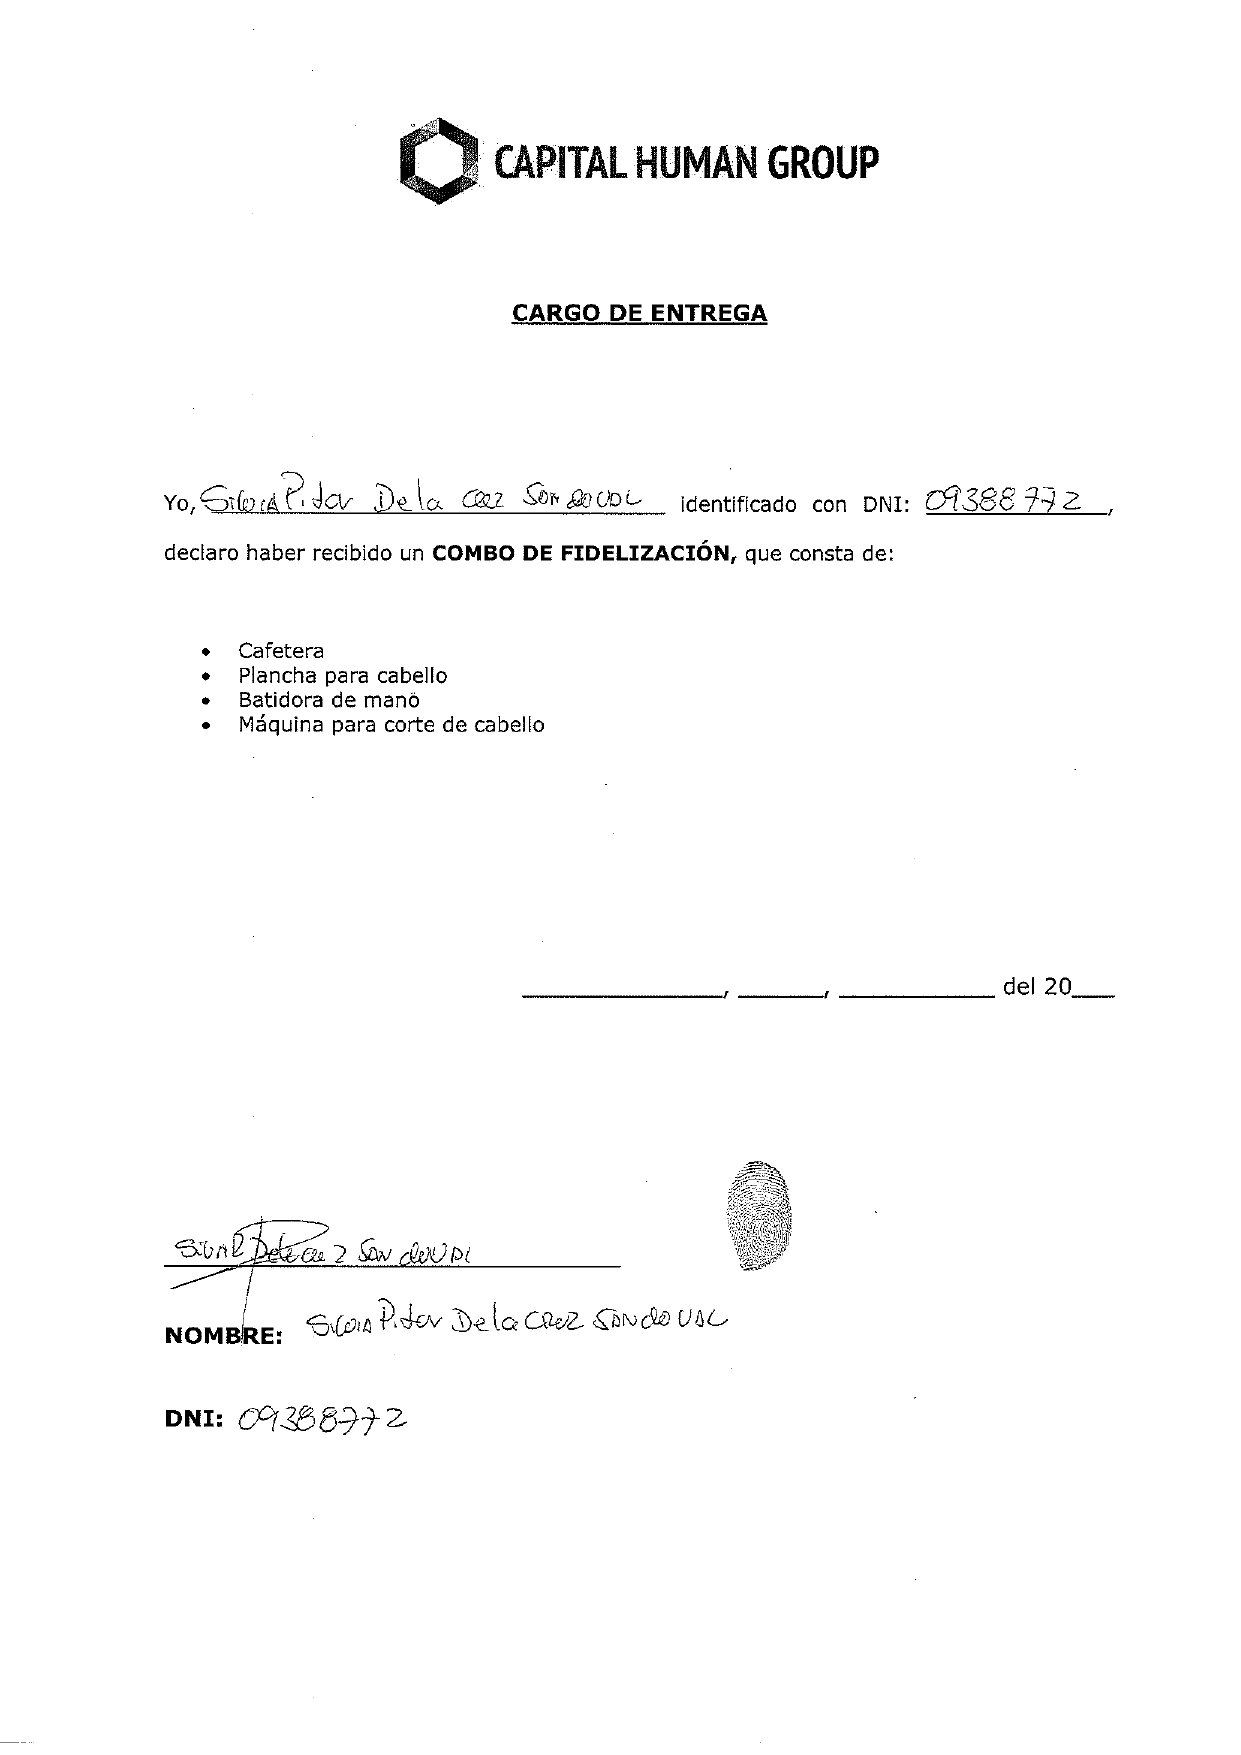 CAPITAL HUMAN GROUP
CARGO DE ENTREGA
Yo, Silvia Pilar De la Cruz Sandoval identificado con DNI: 09388772,
declaro haber recibido un COMBO DE FIDELIZACIÓN, que consta de:
• Cafetera
• Plancha para cabello
• Batidora de mano
• Máquina para corte de cabello
____________, _____, _________ del 20___
NOMBRE: Silvia Pilar De la Cruz Sandoval
DNI: 09388772